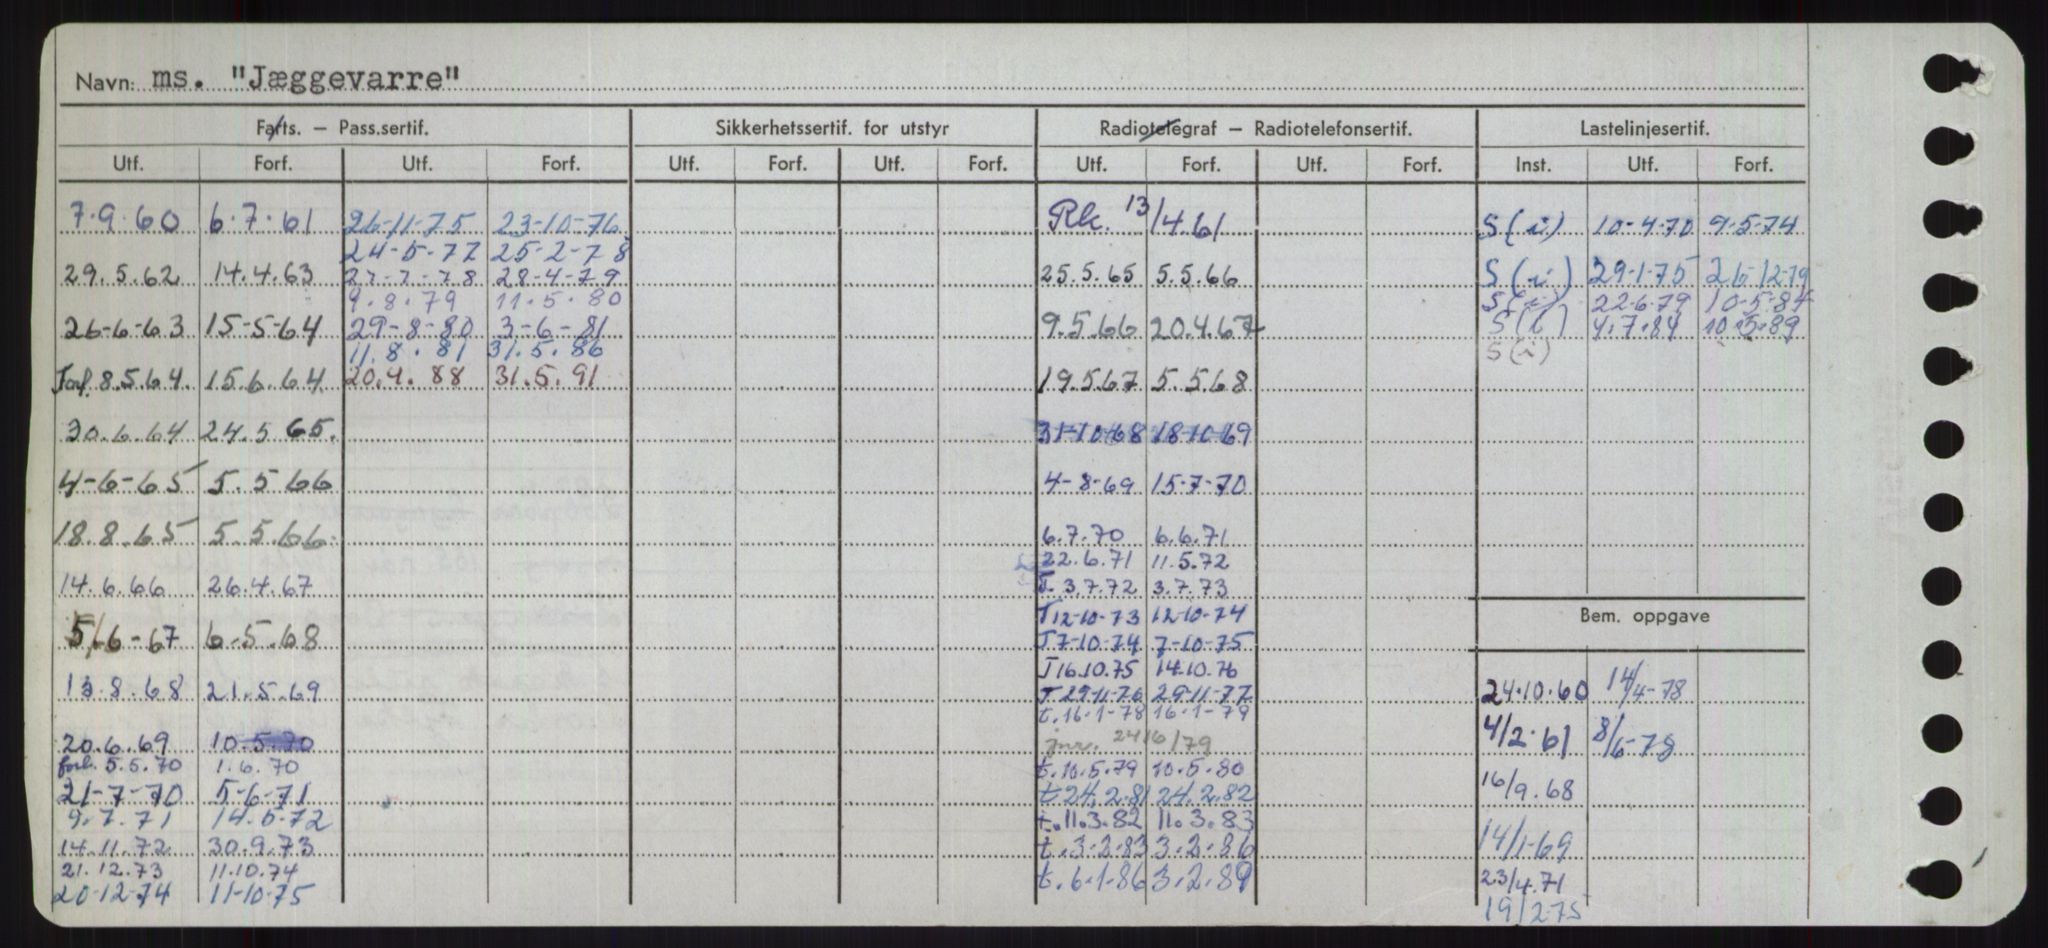 Navn: ms. "Jæggevarre"
Farts. – Pass.sertif. Sikkerhetssertif. for utstyr Radiotelegraf – Radiotelefonsertif. Lastelinjesertif.
Utf. Forf. Utf. Forf. Utf. Forf. Utf. Forf. Utf. Forf. Utf. Forf. Inst. Utf. Forf.
7.9.60 6.7.61 26-11-75 23-10-76 Rk. 13/4.61 S(i) 10-4-70 9-5-74
24-5-77 25-2-78
29.5.62 14.4.63 27-7-78 28-4-79 25.5.65 5.5.66 S(i) 29-1-75
9.8.79 11.5.80 S(i) 22-6-79 10-5-84
26-6-63 15-5-64 29-8-80 3-6-81 9.5.66 20.4.67 S(i) 4.7.84 10.5.89
11.8.81 31.5.86 S(i)
8.5.64. 15.6.64 20.4.88 31.5.91 19.5.67 5.5.68
30.6.64 24.5 65. 31-10-68 18-10-69
4-6-65 5.5 66 4-8-69 15-7-70
18.8.65 5.5.66. 6.7.70 6.6.71
22.6.71 11.5.72
14.6.66 26.4.67 T. 3.7.72 3.7.73
T 12-10-73 12-10-74
Bem. oppgave
5/-6-67 6.5.68 T 7-10-74 7-10-75
T 16.10.75 14.10.76
13.8.68 21.5.69 T 29-11-76 29-11-77 24.10.60 14/4-78
t. 16-1-78 16-1-79
20.6.69 10.5.70 jnr. 2416/79 4/2.61 8/6-78
forl. 5.5.70 1.6.70 t. 10.5.79 10.5.80
21-7-70 5-6-71 t 24.2.81 24.2.82 16/9.68
9.7.71 14.5.72 t. 11.3.82 11.3.83
14.11.72 30.9.73 t. 3.2.83 3.2.86 14/1-69
21.12.73 11.10.74 t. 6.1.86 3.2.89 23/4.71
20-12-74 11-10-75 19/2-75